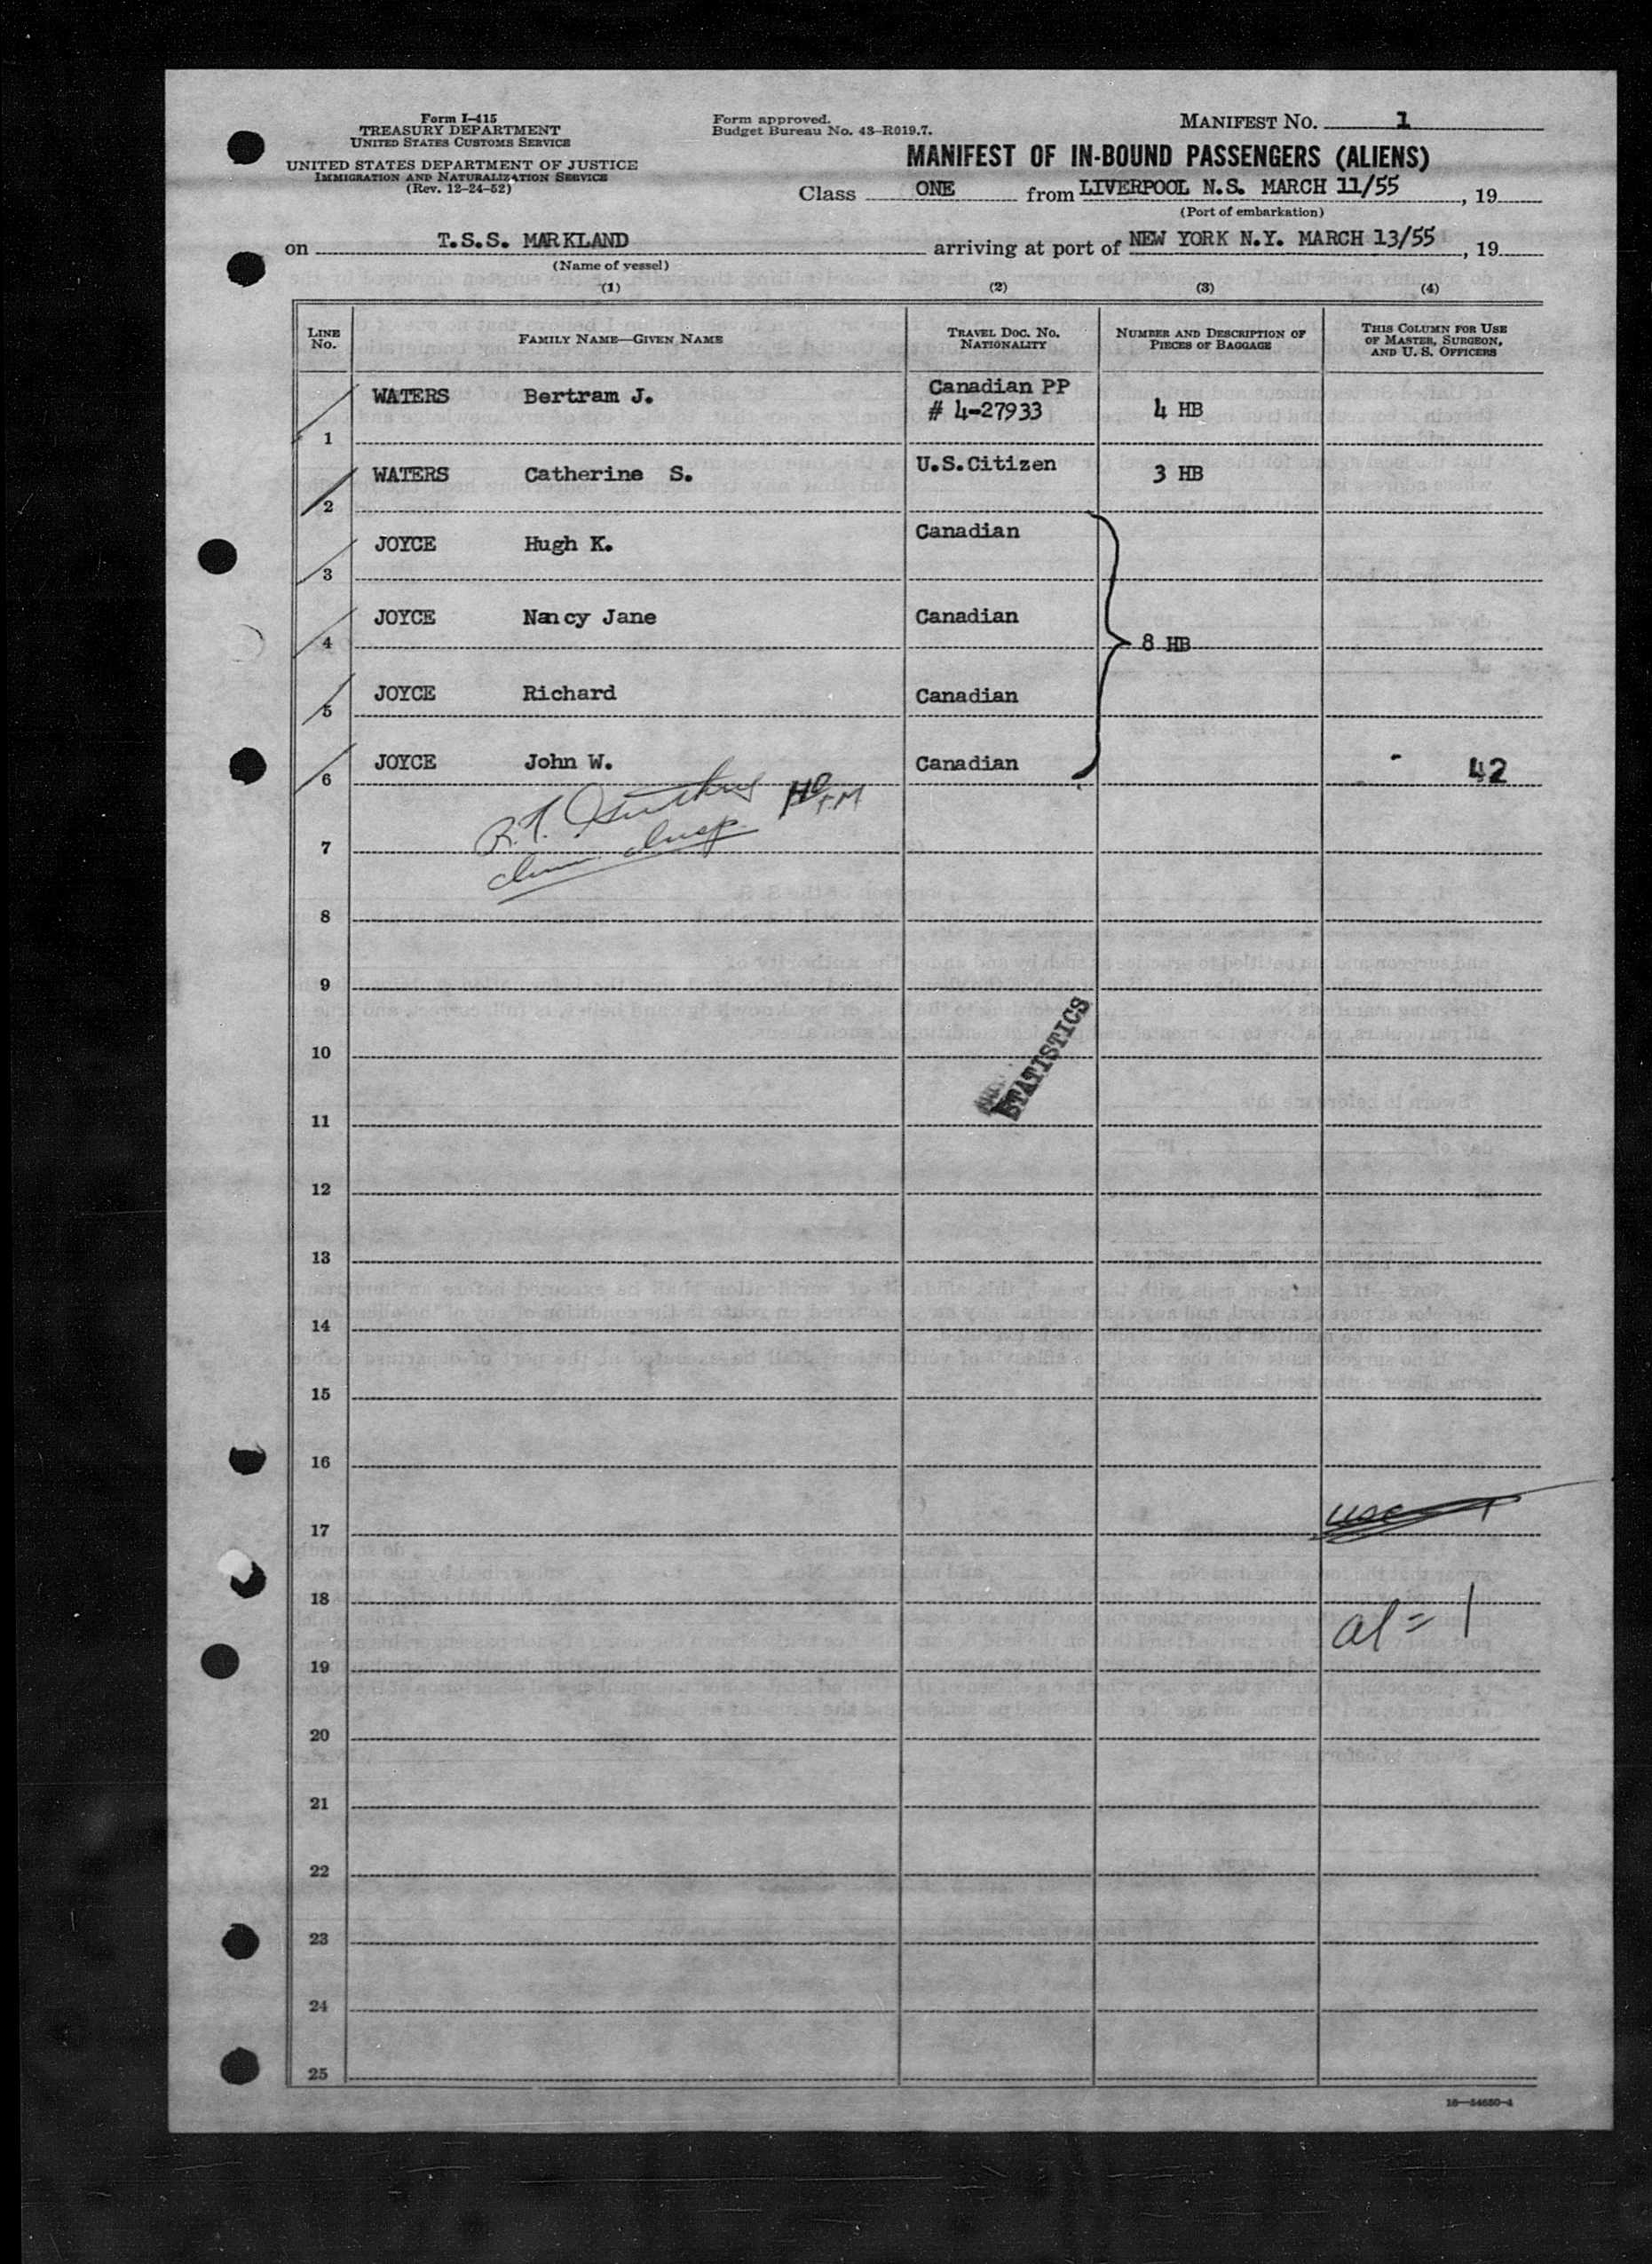 Form I-415
TREASURY DEPARTMENT
UNITED STATES CUSTOMS SERVICE
UNITED STATES DEPARTMENT OF JUSTICE
IMMIGRATION AND NATURALIZATION SERVICE
(Rev. 12-24-52)
Form approved.
Budget Bureau No. 43-R019.7.
MANIFEST NO. 1
MANIFEST OF IN-BOUND PASSENGERS (ALIENS)
Class ONE from LIVERPOOL N.S. MARCH 11/55, 19
(Port of embarkation)
on T.S.S. MARKLAND arriving at port of NEW YORK N.Y. MARCH 13/55, 19
(Name of vessel)
(1) (2) (3) (4)
LINE NO. FAMILY NAME—GIVEN NAME TRAVEL DOC. NO. NATIONALITY NUMBER AND DESCRIPTION OF PIECES OF BAGGAGE THIS COLUMN FOR USE OF MASTER, SURGEON, AND U. S. OFFICERS
1 WATERS Bertram J. Canadian PP # 4-27933 4 HB
2 WATERS Catherine S. U.S.Citizen 3 HB
3 JOYCE Hugh K. Canadian
4 JOYCE Nancy Jane Canadian 8 HB
5 JOYCE Richard Canadian
6 JOYCE John W. Canadian 42
7
8
9
10
STATISTICS
11
12
13
14
15
16
17 usc 1
18
al = 1
19
20
21
22
23
24
25
16—54650-4